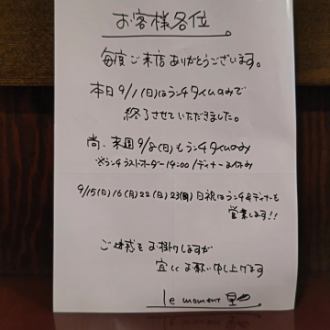 お客様各位。
毎度ご来店ありがとうございます。
本日9/1(日)はランチタイムのみで
終了させていただきました。
尚、来週9/8(日)もランチタイムのみ
※ランチラストオーダー14:00/ディナーお休み
9/15(日)16(月)22(日)23(月)日祝はランチ&ディナーも
営業します!!
ご迷惑をお掛けしますが
宜しくお願い申し上げます
le moment